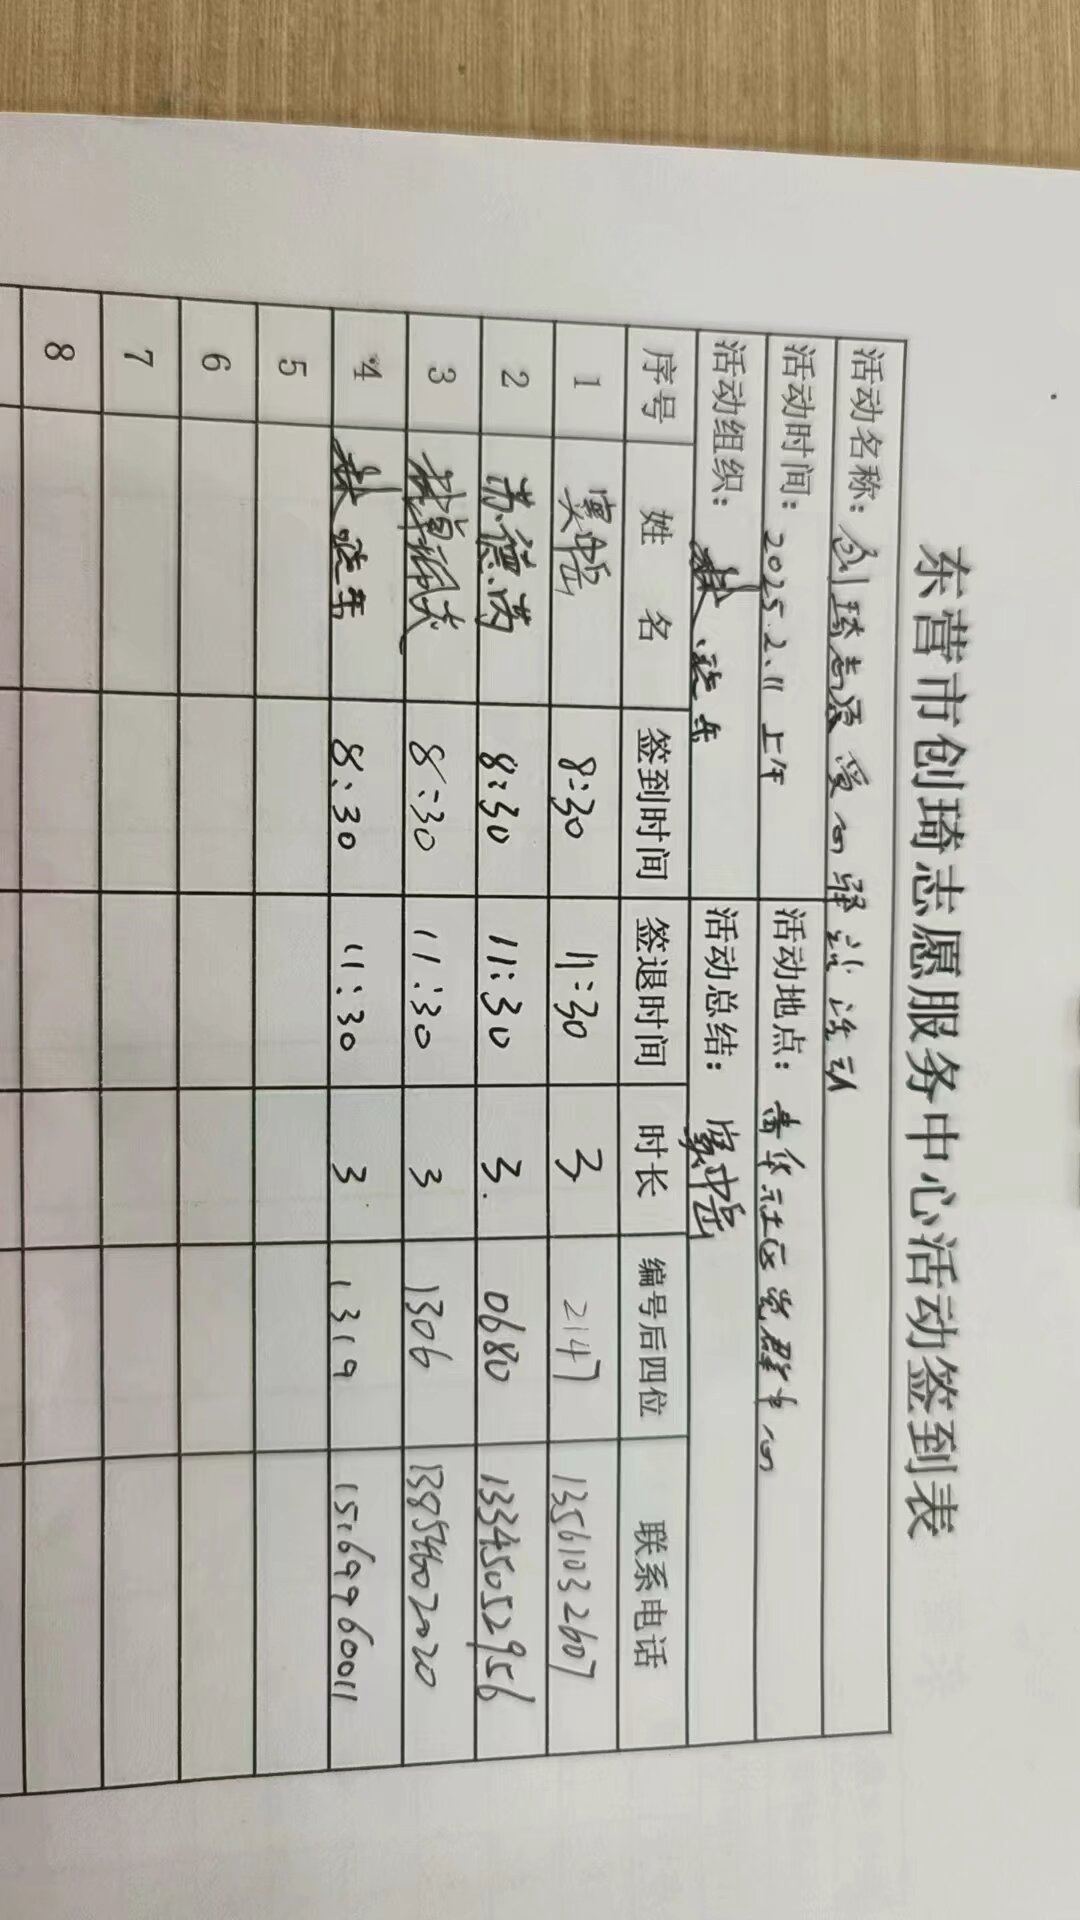 东营市创琦志愿服务中心活动签到表
活动名称：创琦志愿爱心驿站活动
活动时间：2025.2.11 上午 活动地点：社区党群中心
活动组织： 活动总结：
序号 姓名 签到时间 签退时间 时长 编号后四位 联系电话
1 8:30 11:30 3 2147 13561032607
2 苏德芮 8:30 11:30 3. 0680 13345052956
3 8:30 11:30 3 1306 13854602020
4 8:30 11:30 3 1319 15169960011
5
6
7
8